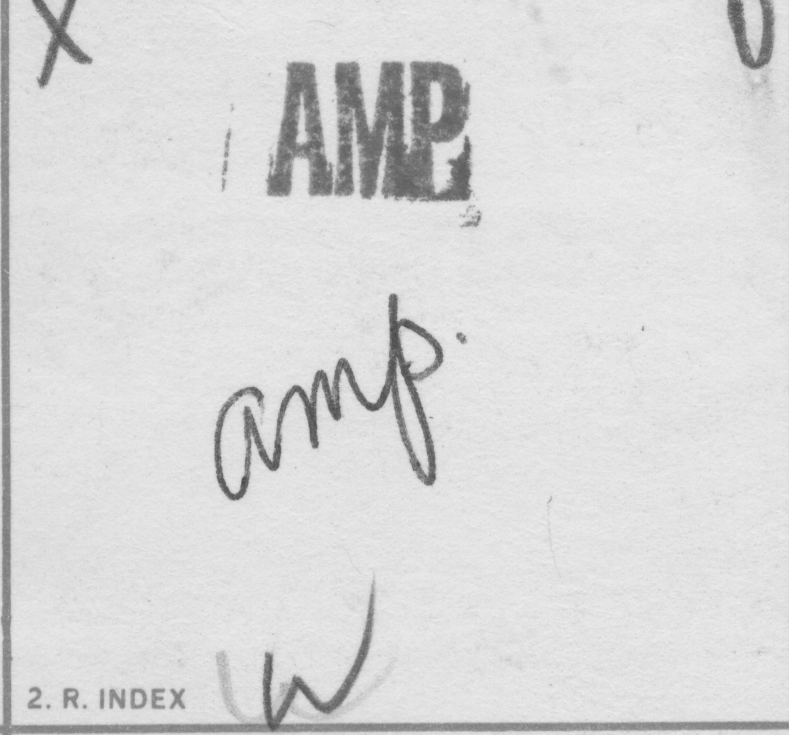 AMP
amp.
2. R. INDEX